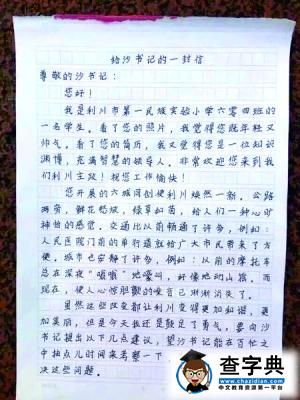 给沙书记的一封信
尊敬的沙书记:
您好!
我是利川市第一民族实验小学六零四班的
一名学生。看了您的照片,我觉得您既年轻又
帅气。看了您的简历,我又觉得您是一位知识
渊博,充满智慧的领导人。非常欢迎您来到我
们利川主政!祝您工作愉快!
您开展的六城同创使利川焕然一新。公路
两旁,鲜花怒放,绿草如茵,给人们一种心旷
神怡的感觉。交通比以前畅通了许多,例如:
人民医院门前的单行道就给广大市民带来了方
便。城市也安静了许多,例如:以前的摩托车
总在深夜“嗷嗷”地嚎叫,好像地动山摇。而
现在,使人心惊胆颤的噪音已渐渐消失了。
虽然这些改变都让利川变得更加和谐,更
加美丽,但是今天我还是鼓足了勇气,要向沙
书记提出以下几点建议,望沙书记能在百忙
文中抽点儿时间来考察一下
决这些问题。
查字典
中文教育资源第一平台
www.chazidian.com